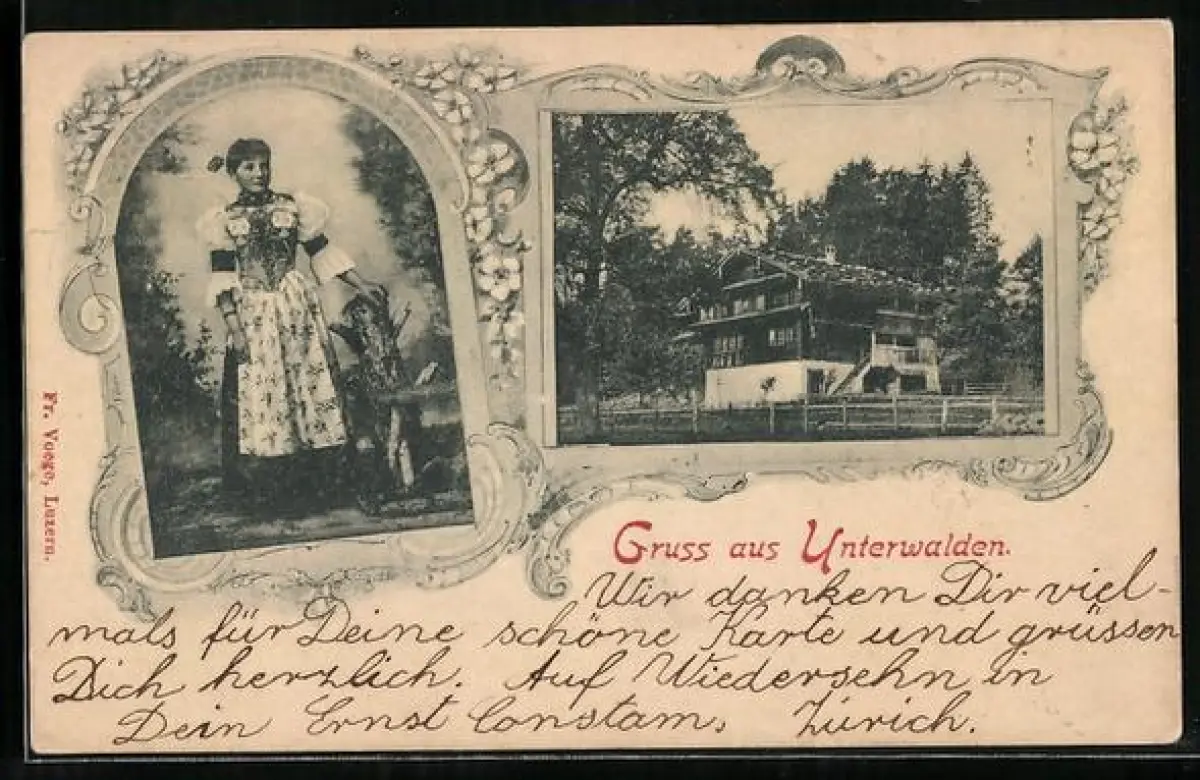 Fr. Voege, Luzern.
Gruss aus Unterwalden.
Wir danken Dir viel-
mals für Deine schöne Karte und grüssen
Dich herzlich. Auf Wiedersehn in
Dein Ernst Constam, Zürich.